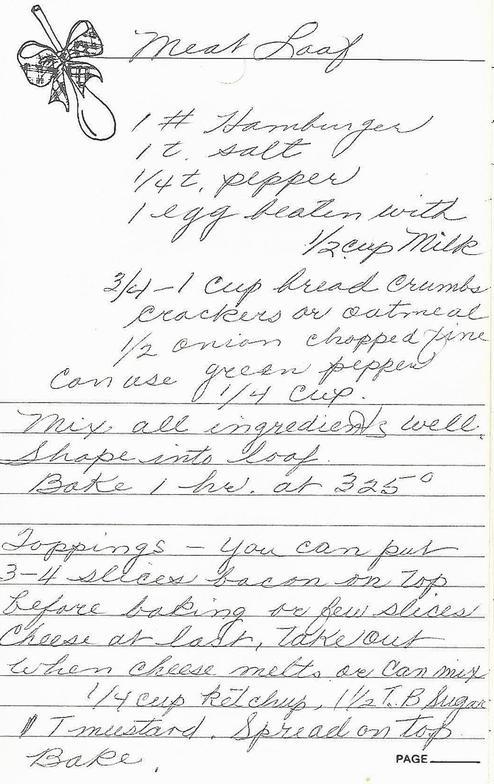 Meat Loaf
1 # Hamburger
1 t. salt
1/4 t. pepper
1 egg beaten with
1/2 cup Milk
3/4 - 1 cup bread crumbs
crackers or oatmeal
1/2 onion chopped fine
can use green pepper
1/4 cup.
Mix all ingredients well.
Shape into loaf.
Bake 1 hr. at 325°
Toppings - You can put
3-4 slices bacon on top
before baking or few slices
Cheese at last, Take out
when cheese melts or can mix
1/4 cup ketchup, 1 1/2 T. B Sugar
1 T mustard. Spread on top
Bake.
PAGE